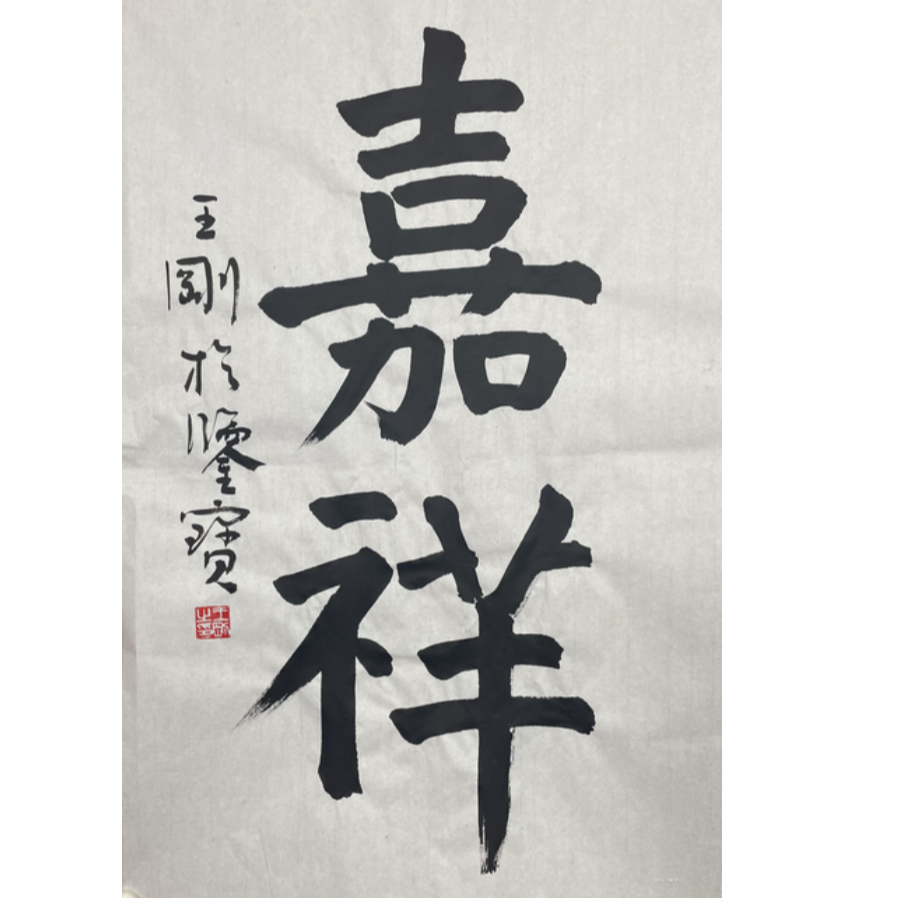 嘉祥
王剛於鑒寶